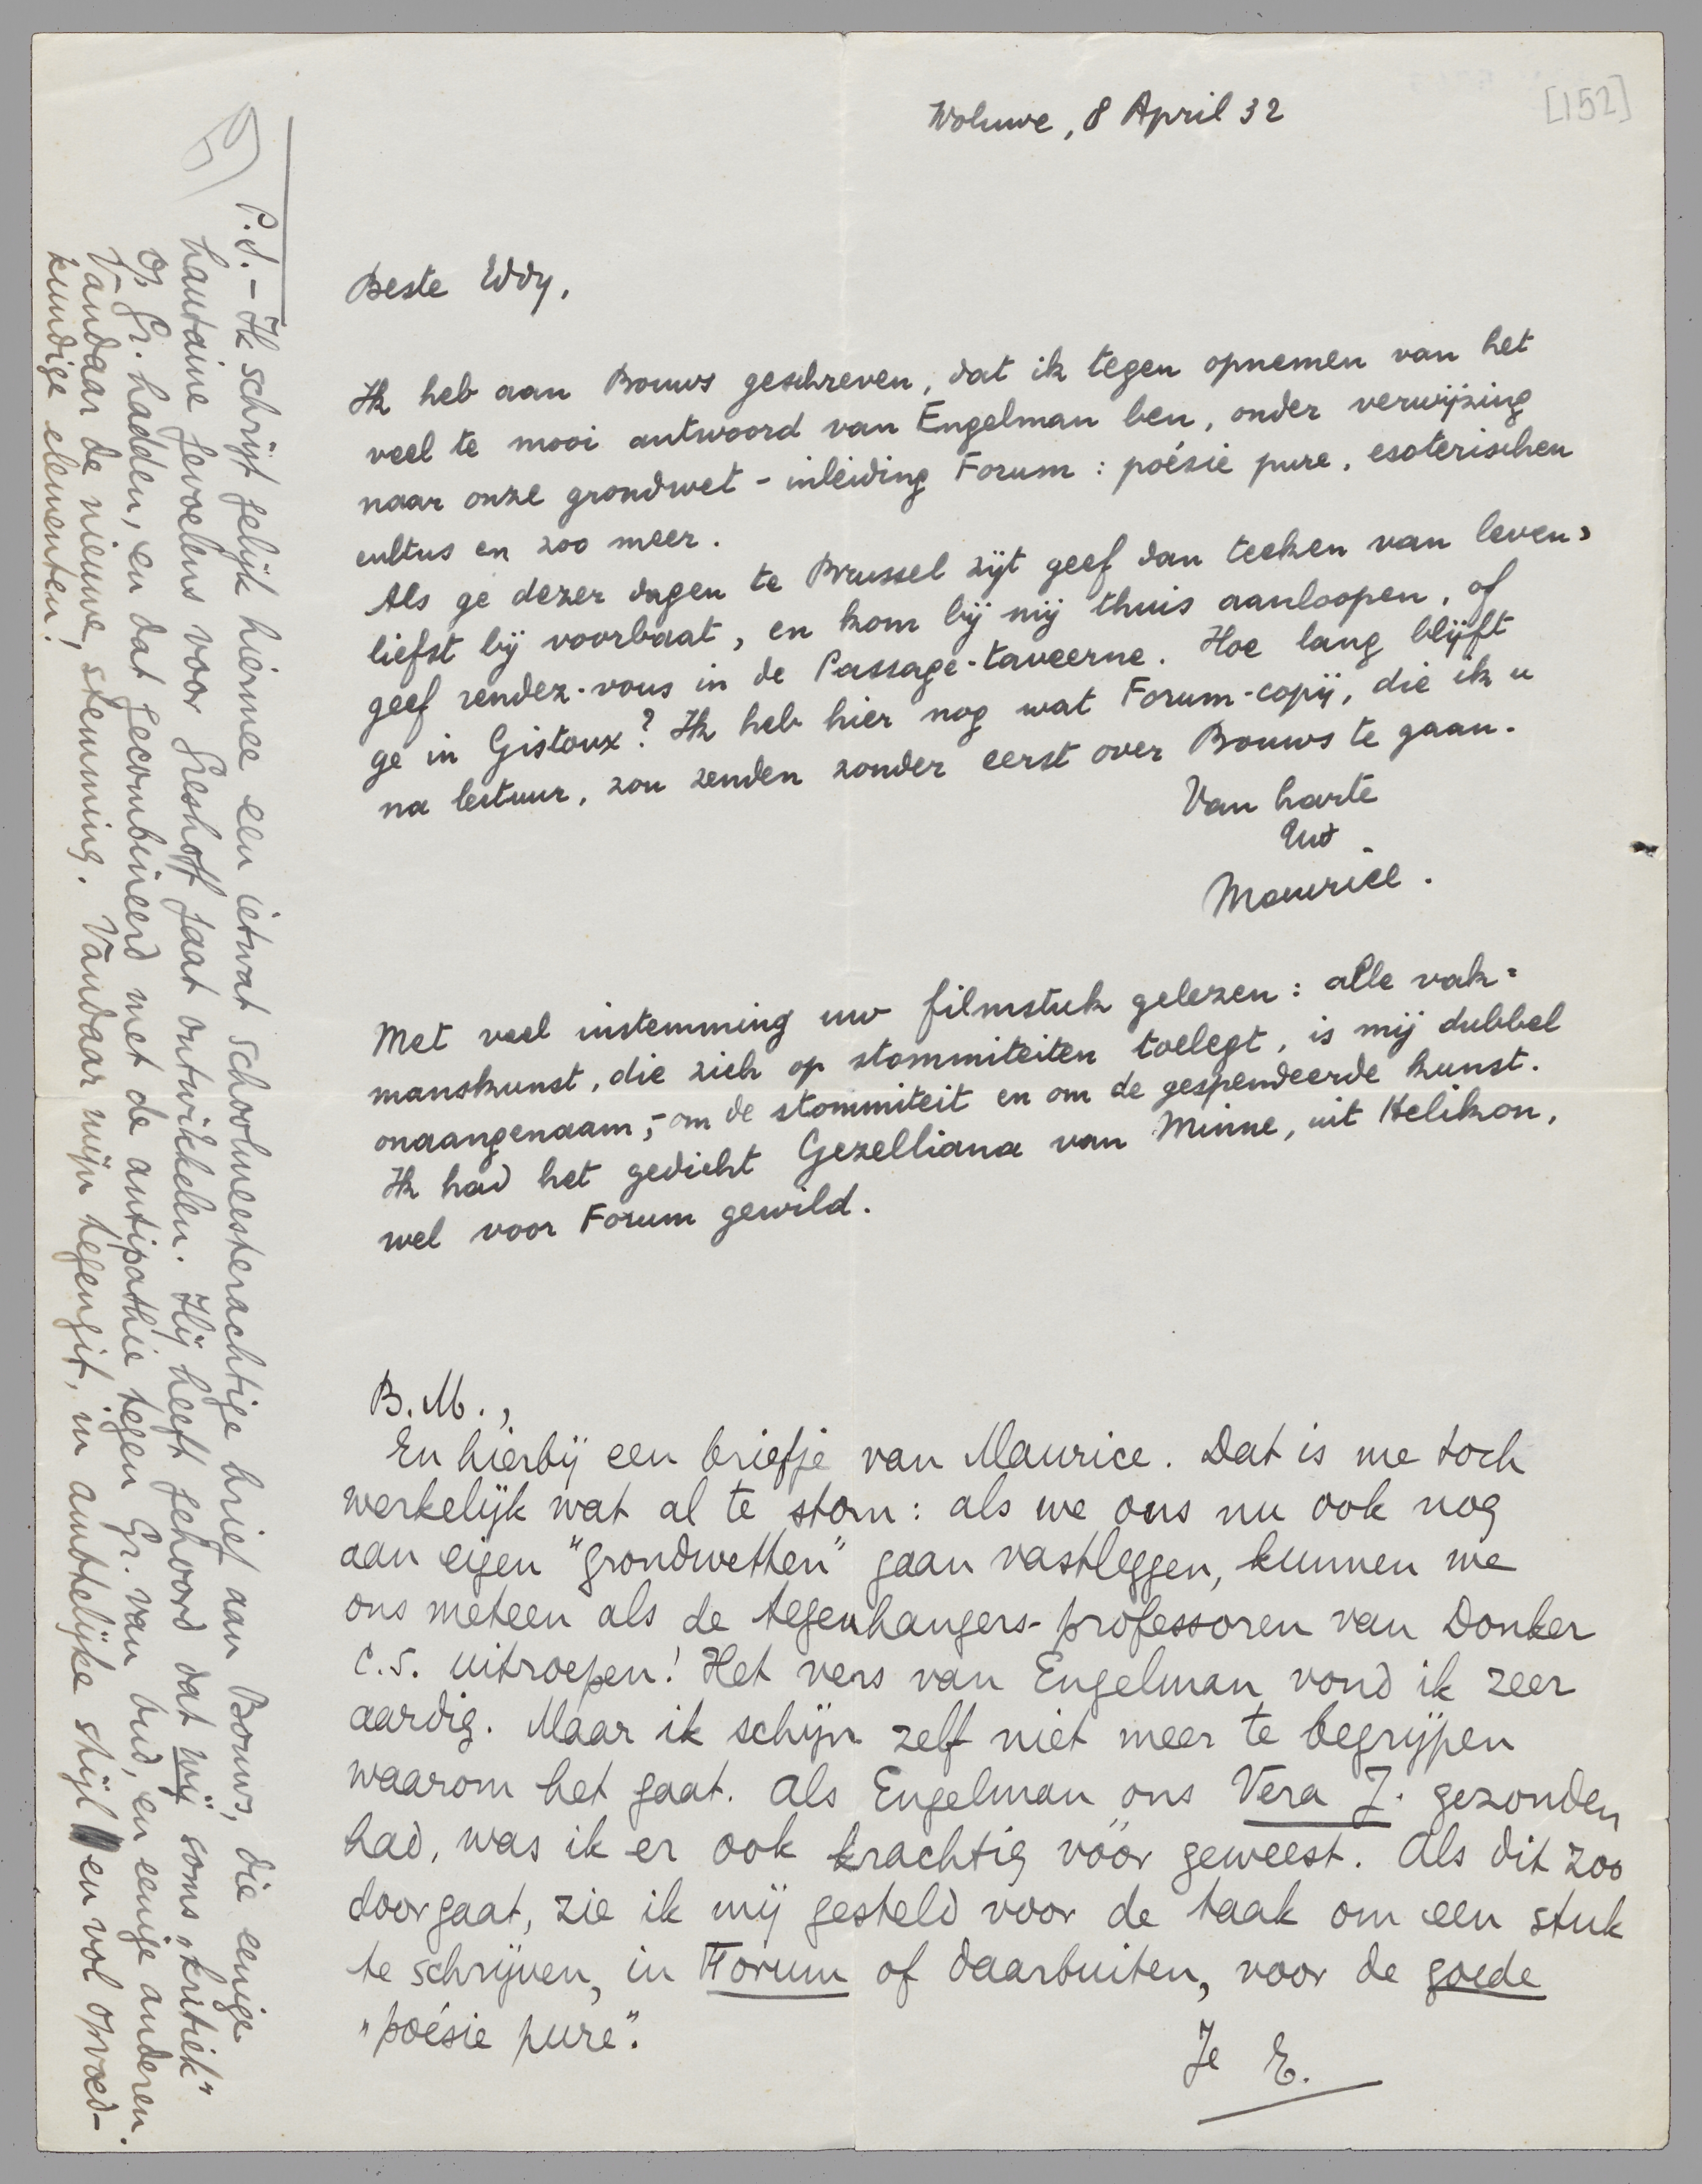 [152]
Woluwe, 8 April 32
Beste Eddy,
Ik heb aan Bouws geschreven, dat ik tegen opnemen van het
veel te mooi antwoord van Engelman ben, onder verwijzing
naar onze grondwet - inleiding Forum : poésie pure, esoterischen
cultus en zoo meer.
Als ge dezer dagen te Brussel zijt geef dan teeken van leven,
liefst bij voorbaat, en kom bij mij thuis aanloopen, of
geef rendez-vous in de Passage-taveerne. Hoe lang blijft
ge in Gistoux? Ik heb hier nog wat Forum-copij, die ik u
na lectuur, zou zenden zonder eerst over Bouws te gaan.
Van harte
Uw
Maurice.
Met veel instemming uw filmstuk gelezen : alle vak=
manskunst, die zich op stommiteiten toelegt, is mij dubbel
onaangenaam, - om de stommiteit en om de gespendeerde kunst.
Ik had het gedicht Gezelliana van Minne, uit Helikon,
wel voor Forum gewild.
B.M.,
En hierbij een briefje van Maurice. Dat is me toch
werkelijk wat al te stom : als we ons nu ook nog
aan eigen "grondwetten" gaan vastleggen, kunnen we
ons meteen als de tegenhangers-professoren van Donker
c.s. uitroepen! Het vers van Engelman vond ik zeer
aardig. Maar ik schijn zelf niet meer te begrijpen
waarom het gaat. Als Engelman ons Vera J. gezonden
had, was ik er ook krachtig vóór geweest. Als dit zoo
doorgaat, zie ik mij gesteld voor de taak om een stuk
te schrijven, in Forum of daarbuiten, voor de goede
"poésie pure".
Je E.
P.S. - Ik schrijf gelijk hiermee een ietwat schoolmeesterachtige brief aan Bouws, die eenige
hautaine gevoelens voor Greshoff gaat ontwikkelen. Hij heeft gehoord dat wij soms "kritiek"
op Gr. hadden, en dat gecombineerd met de antipathie tegen Gr. van bud, en eenige anderen.
Vandaar de nieuwe, stemming. Vandaar mijn tegengif, in ambtelijke stijl en vol opvoed-
kundige elementen!